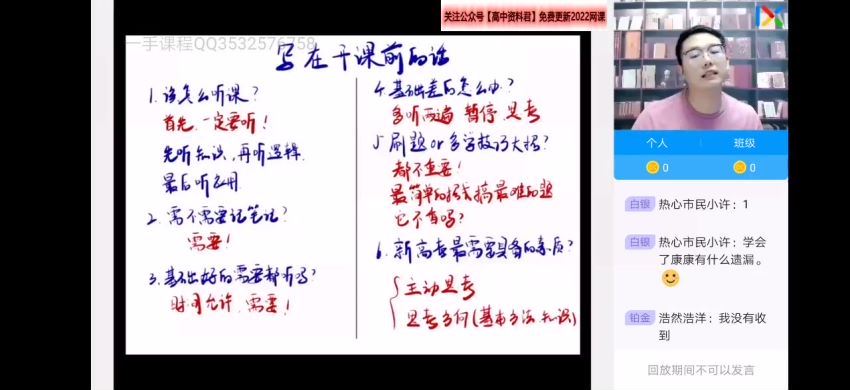 关注公众号【高中资料君】免费更新2022网课
一手课程QQ3532576758
写在干课前的话
1. 该怎么听课？
首先，一定要听！
先听知识，再听逻辑，
最后听应用
2. 需不需要记笔记？
需要！
3. 基础好的需要都听吗？
时间允许，需要！
4. 基础差的怎么办？
多听两遍 暂停 思考
5 刷题 or 多学技巧大招？
都不重要！
最简单的招去搞最难的题
它不香吗？
6. 新高考最需要具备的素质？
主动思考
思考方向(基本方法 知识)
个人
班级
0
0
白银 热心市民小许：1
白银 热心市民小许：学会
了康康有什么遗漏。
铂金 浩然浩洋：我没有收
到
回放期间不可以发言